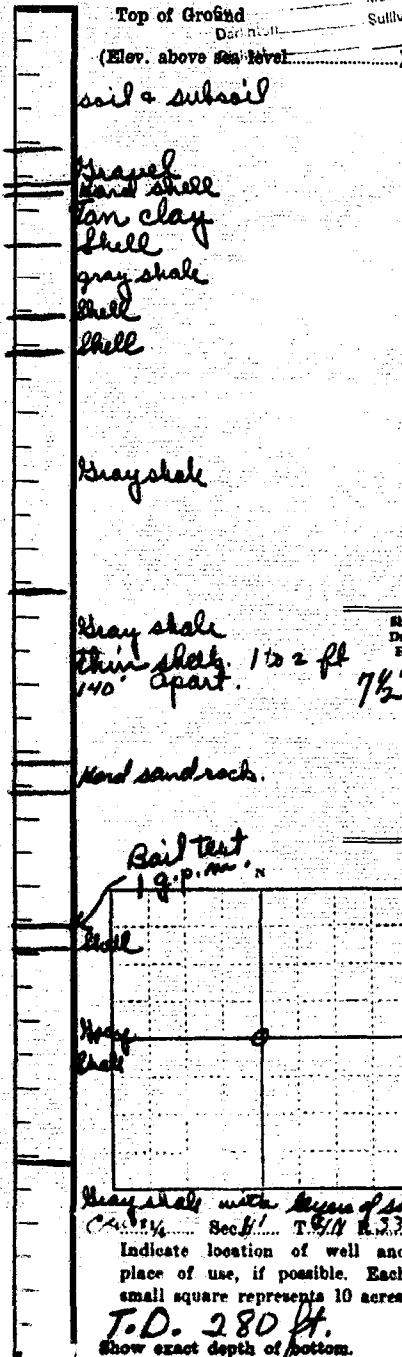 Top of Ground
Sulliv
(Elev. above sea level
soil & subsoil
Gravel
Hard shell
Tan clay
Shell
gray shale
Shell
Shell
Gray shale
Gray shale
thin shells. 1 to 2 ft
140' apart.
7½
Hard sand rock.
Bail test
1 g.p.m.
N
Shell
Gray
Shale
Gray shale with layers of
¼ Sec. T. R. 33
Indicate location of well and
place of use, if possible. Each
small square represents 10 acres
T.D. 280 ft.
Show exact depth of bottom.